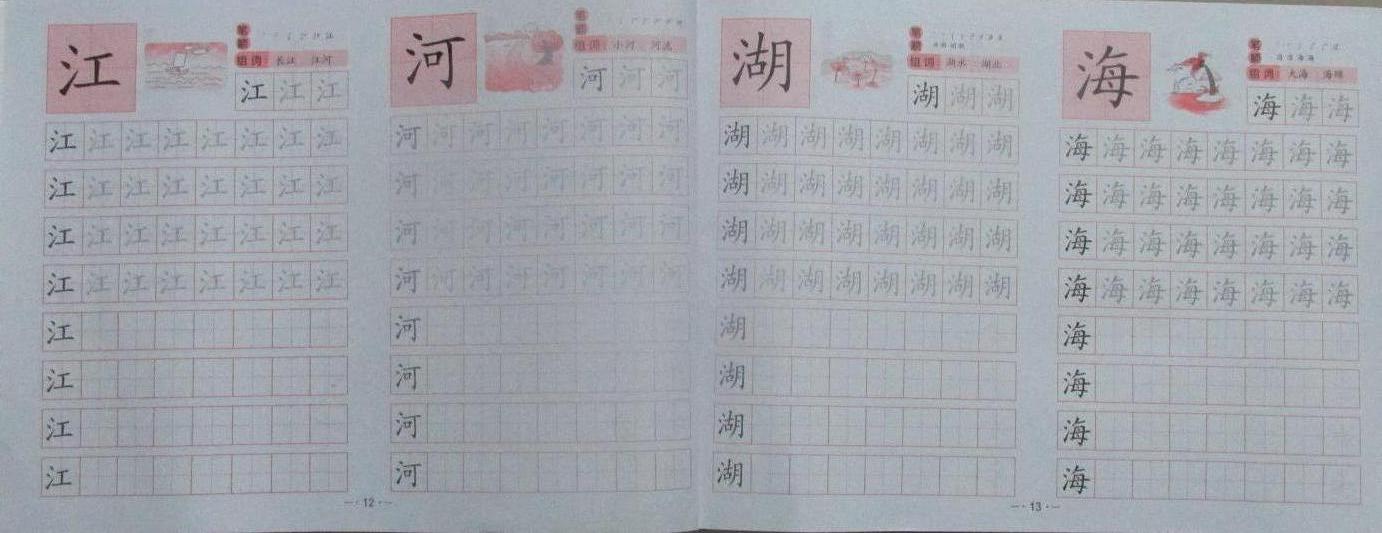 江
笔顺
组词 长江 江河
江江江
江江江江江江江江
江江江江江江江江
江江江江江江江江
江江江江江江江江
江
江
江
江
河
笔顺
组词 小河 河流
河河河
河河河河河河河河
河河河河河河河河
河河河河河河河河
河河河河河河河河
河
河
河
河
12
湖
笔顺
组词 湖水 湖北
湖湖湖
湖湖湖湖湖湖湖湖
湖湖湖湖湖湖湖湖
湖湖湖湖湖湖湖湖
湖湖湖湖湖湖湖湖
湖
湖
湖
湖
海
笔顺
组词 大海
海海海
海海海海海海海海
海海海海海海海海
海海海海海海海海
海海海海海海海海
海
海
海
海
13